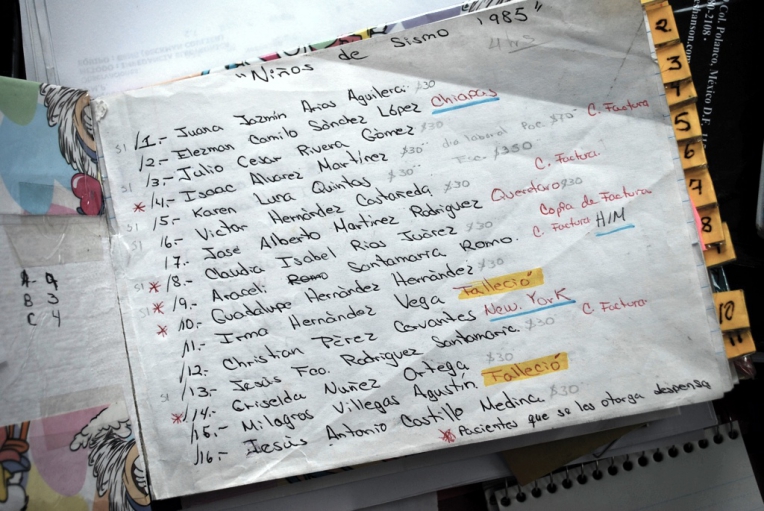 "Niños de Sismo 1985"
4 hrs
SI /1.- Juana Jazmín Arias Aguilera. $30
/2.- Elezman Camilo Sánchez López Chiapas
SI /3.- Julio Cesar Rivera Gómez $30 C. Factura
* /4.- Isaac Alvarez Martínez $30 dia laboral Pac. $70
SI /5.- Karen Luna Quintas $30 $350
SI /6.- Victor Hernández Castañeda $30 C. Factura.
17.- José Alberto Martínez Rodriguez Querétaro $30
SI * /8.- Claudia Isabel Rios Juárez $30 Copia de Factura
SI * /9.- Araceli Romo Santamaría Romo. C. Factura H/M
* 10.- Guadalupe Hernández Hernández $30
11.- Irma Hernández Vega Falleció
/12.- Christian Pérez Cervantes New. York
SI /13.- Jesús Fco. Rodriguez Santamaria. $30 C. Factura
* /14.- Griselda Nuñez Ortega $30
/15.- Milagros Villegas Agustín. Falleció
/16.- Jesús Antonio Castillo Medina. $30
* Pacientes que se les otorga despensa
A 9
B 3
C 4
2
3
4
5
6
7
8
10
11
Col. Polanco, México D.F.
-2108
hanson.com